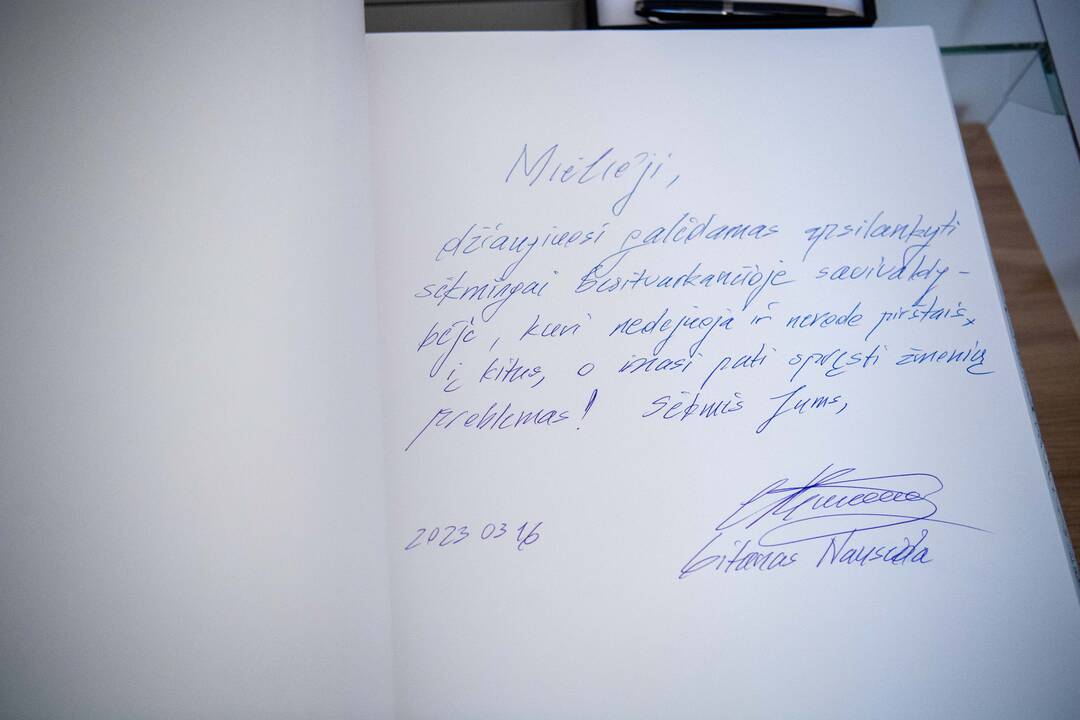 Mielieji,
džiaugiuosi galėdamas apsilankyti
sėkmingai besitvarkančioje savivaldy-
bėje, kuri nedejuoja ir nerodo pirštais
į kitus, o imasi pati spręsti žmonių
problemas! Sėkmės Jums,
2023 03 16
Gitanas Nausėda